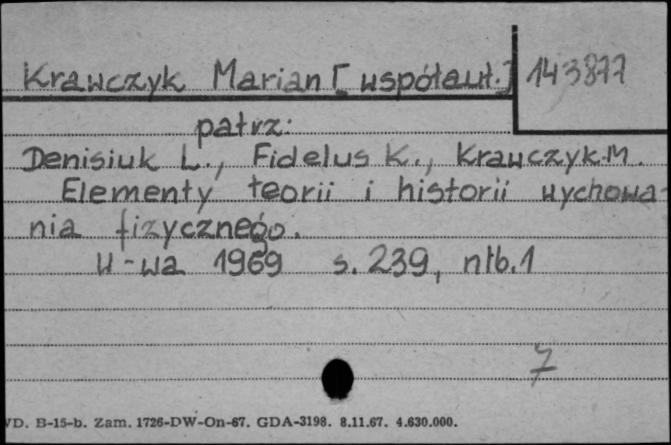 Krawczyk Marian [współaut.] 143877
patrz:
Denisiuk L., Fidelus K., Krawczyk M.
Elementy teorii i historii wychowa
nia fizycznego.
W-wa 1969 s. 239, nlb. 1
7
D. B-15-b. Zam. 1726-DW-On-67. GDA-3198. 8.11.67. 4.630.000.